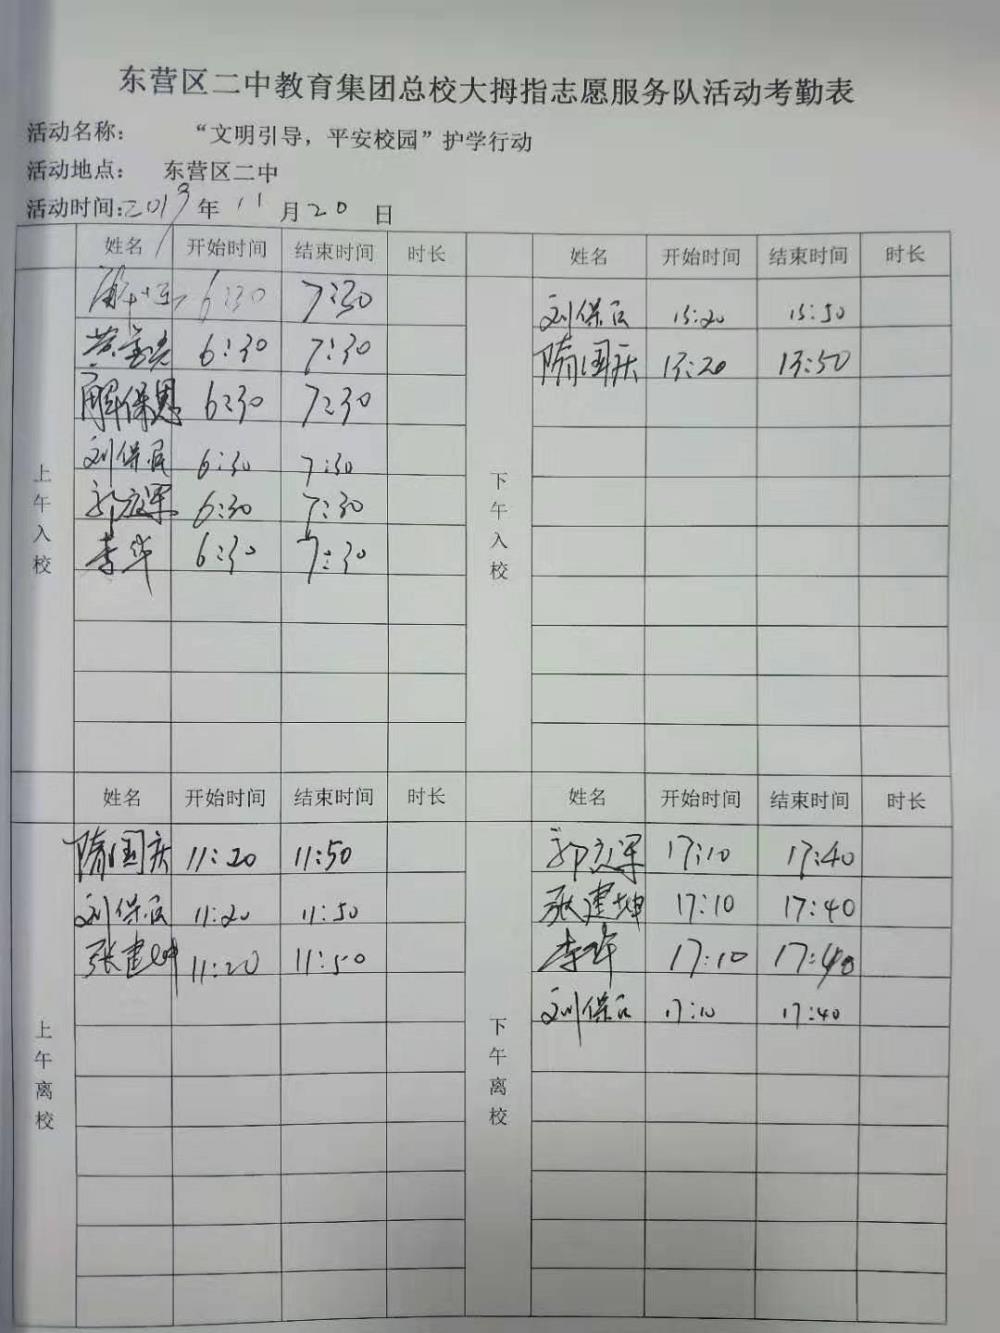 东营区二中教育集团总校大拇指志愿服务队活动考勤表
活动名称： “文明引导，平安校园”护学行动
活动地点： 东营区二中
活动时间:2019年11月20日
姓名 开始时间 结束时间 时长
上午入校
6:30 7:30
6:30 7:30
解保恩 6:30 7:30
刘保民 6:30 7:30
郭立军 6:30 7:30
李华 6:30 7:30
姓名 开始时间 结束时间 时长
下午入校
刘保民 13:20 13:50
隋国庆 13:20 13:50
姓名 开始时间 结束时间 时长
上午离校
隋国庆 11:20 11:50
刘保民 11:20 11:50
张建坤 11:20 11:50
姓名 开始时间 结束时间 时长
下午离校
郭立军 17:10 17:40
张建坤 17:10 17:40
李华 17:10 17:40
刘保民 17:10 17:40